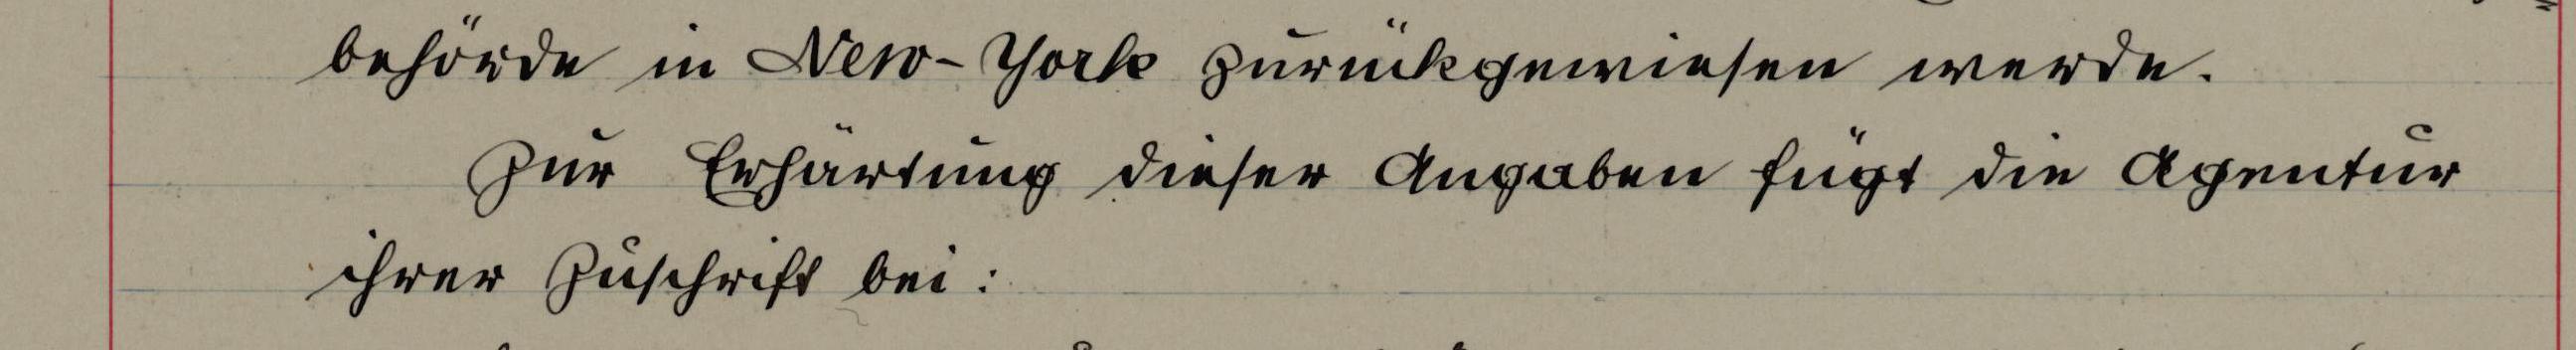 behörde in New-York zurückgewiesen werde.
Zur Erhärtung dieser Angaben fügt die Agentur
ihrer Zuschrift bei: